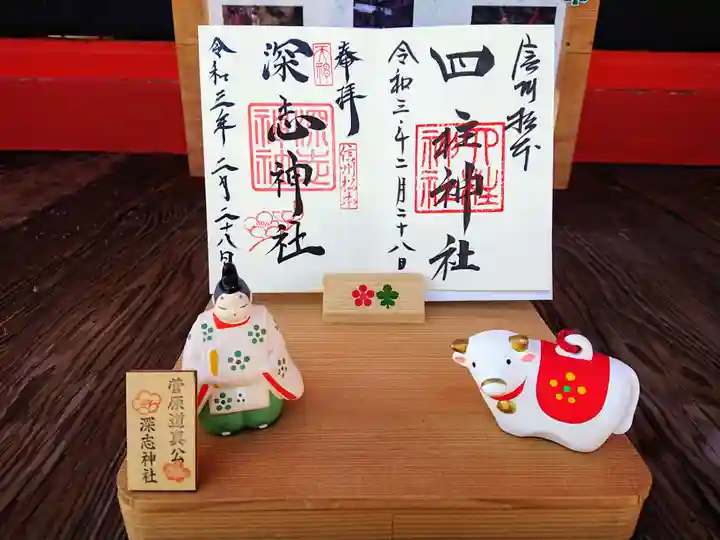 信州松本
四柱神社
四柱神社
令和三年二月二十八日
奉拝
信州松本
天神
深志神社
深志神社
令和三年二月二十八日
菅原道真公
深志神社